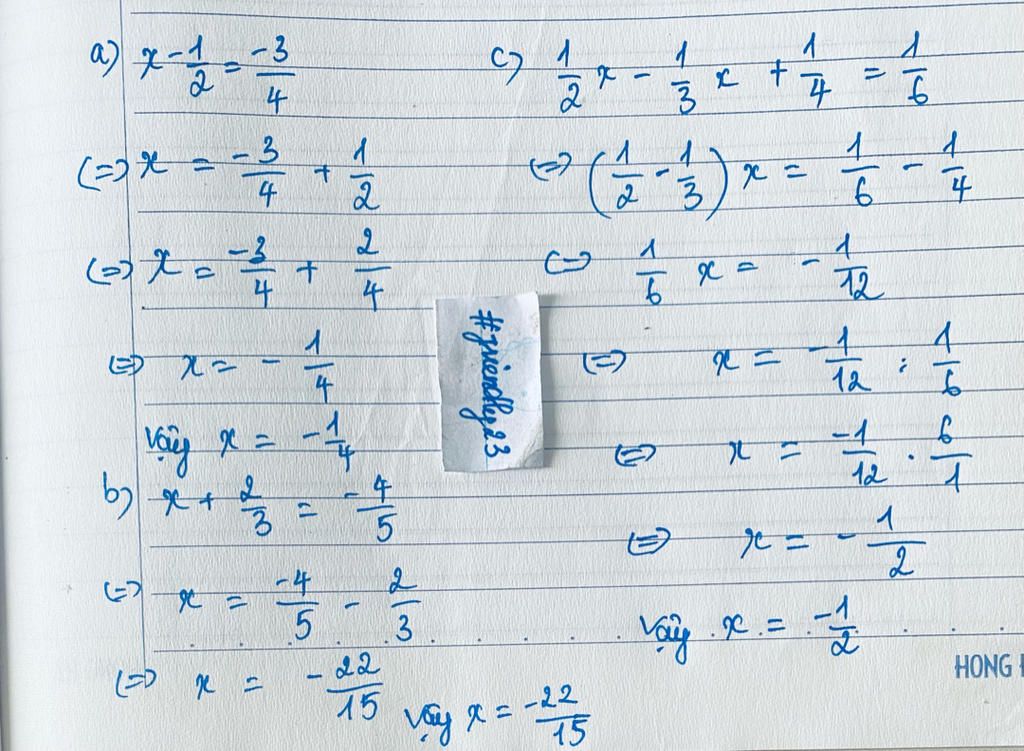 a) x - 1/2 = -3/4
(=) x = -3/4 + 1/2
(=) x = -3/4 + 2/4
(=) x = - 1/4
Vậy x = -1/4
b) x + 2/3 = -4/5
(=) x = -4/5 - 2/3
(=) x = - 22/15
Vậy x = -22/15
c) 1/2 x - 1/3 x + 1/4 = 1/6
(=) (1/2 - 1/3) x = 1/6 - 1/4
(=) 1/6 x = - 1/12
(=) x = -1/12 : 1/6
(=) x = -1/12 . 6/1
(=) x = - 1/2
Vậy x = -1/2
#friendly23
HONG